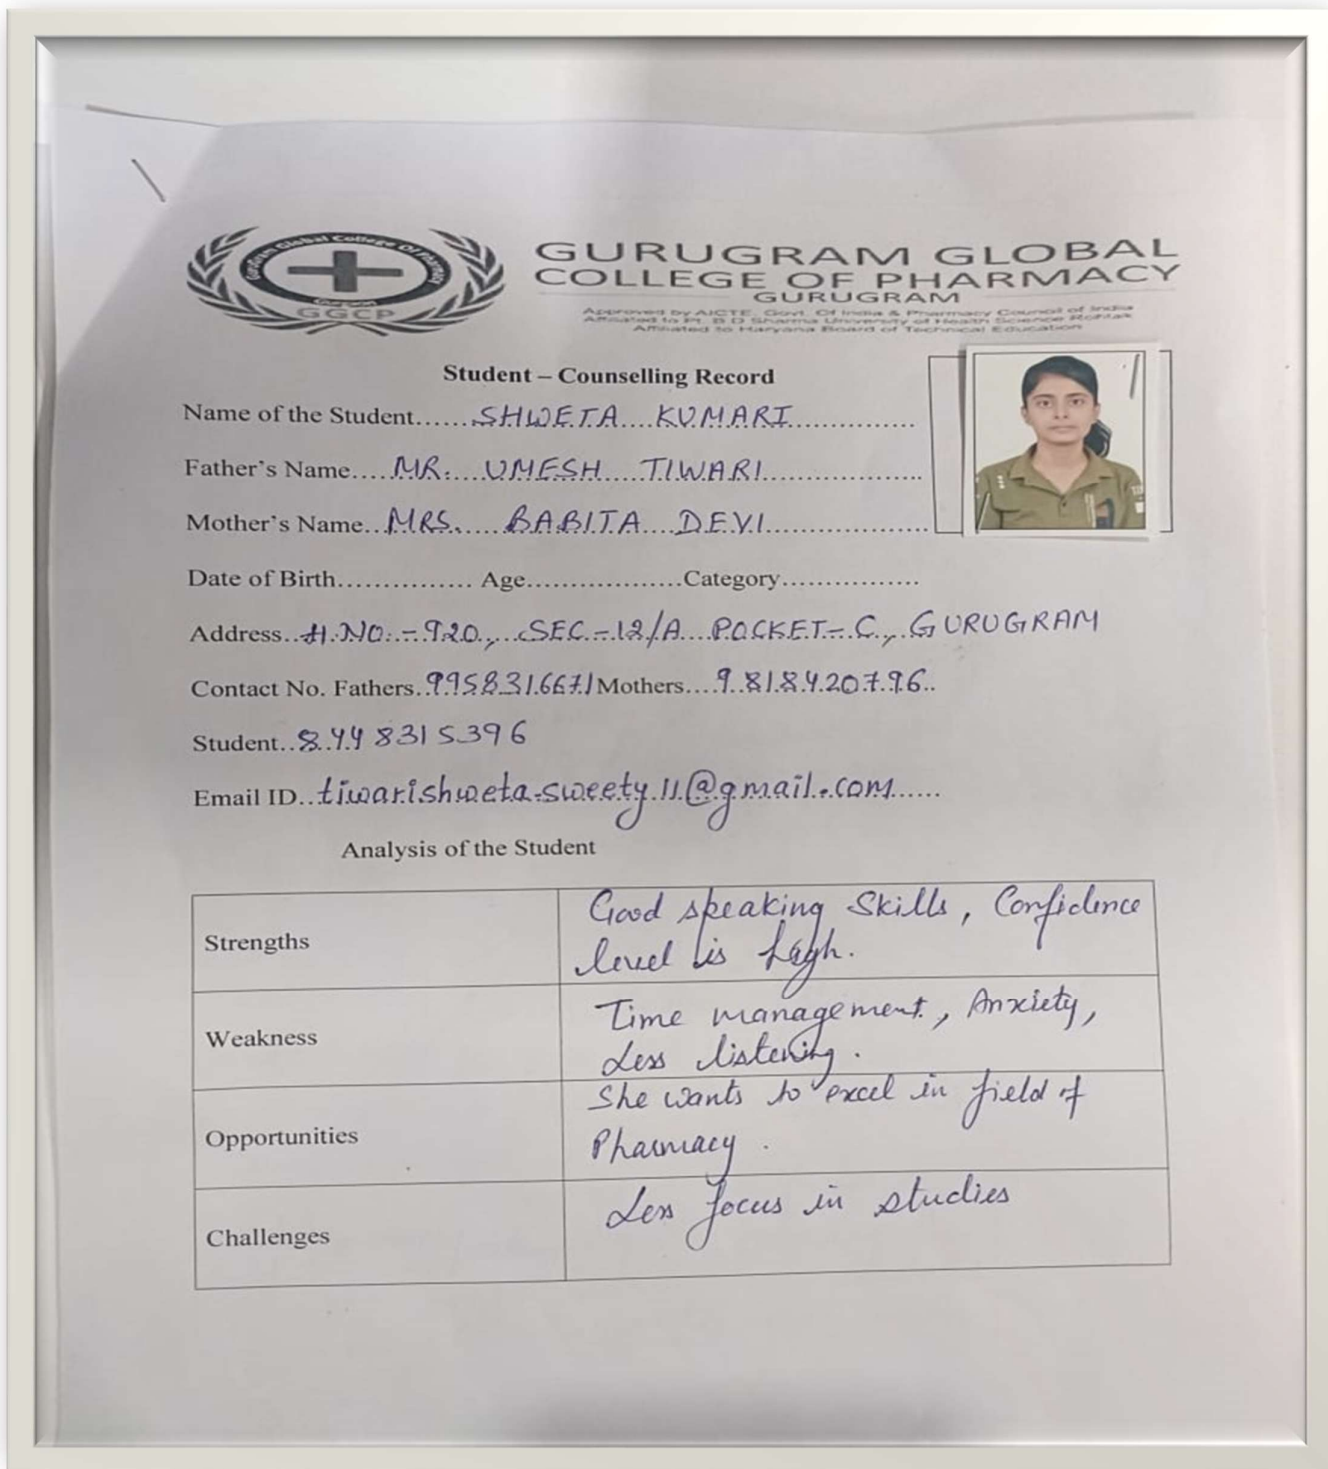 Gurugram Global College Of Pharmacy
Gurgaon
GGCP
GURUGRAM GLOBAL
COLLEGE OF PHARMACY
GURUGRAM
Approved by AICTE, Govt. Of India & Pharmacy Council of India
Affiliated to Pt. B D Sharma University of Health Science Rohtak
Affiliated to Haryana Board of Technical Education
Student – Counselling Record
Name of the Student......SHWETA KUMARI..............
Father's Name....MR. UMESH TIWARI..................
Mother's Name..MRS. BABITA DEVI..................
Date of Birth............... Age.................Category...............
Address..H.NO.-920, SEC-12/A POCKET-C, GURUGRAM
Contact No. Fathers.9958316671 Mothers....9818420796..
Student..8448315396
Email ID..tiwarishweta.sweety11@gmail.com......
Analysis of the Student
Strengths Good speaking Skills, Confidence
level is high.
Weakness Time management, Anxiety,
Less listening.
Opportunities She wants to excel in field of
Pharmacy.
Challenges Less focus in studies